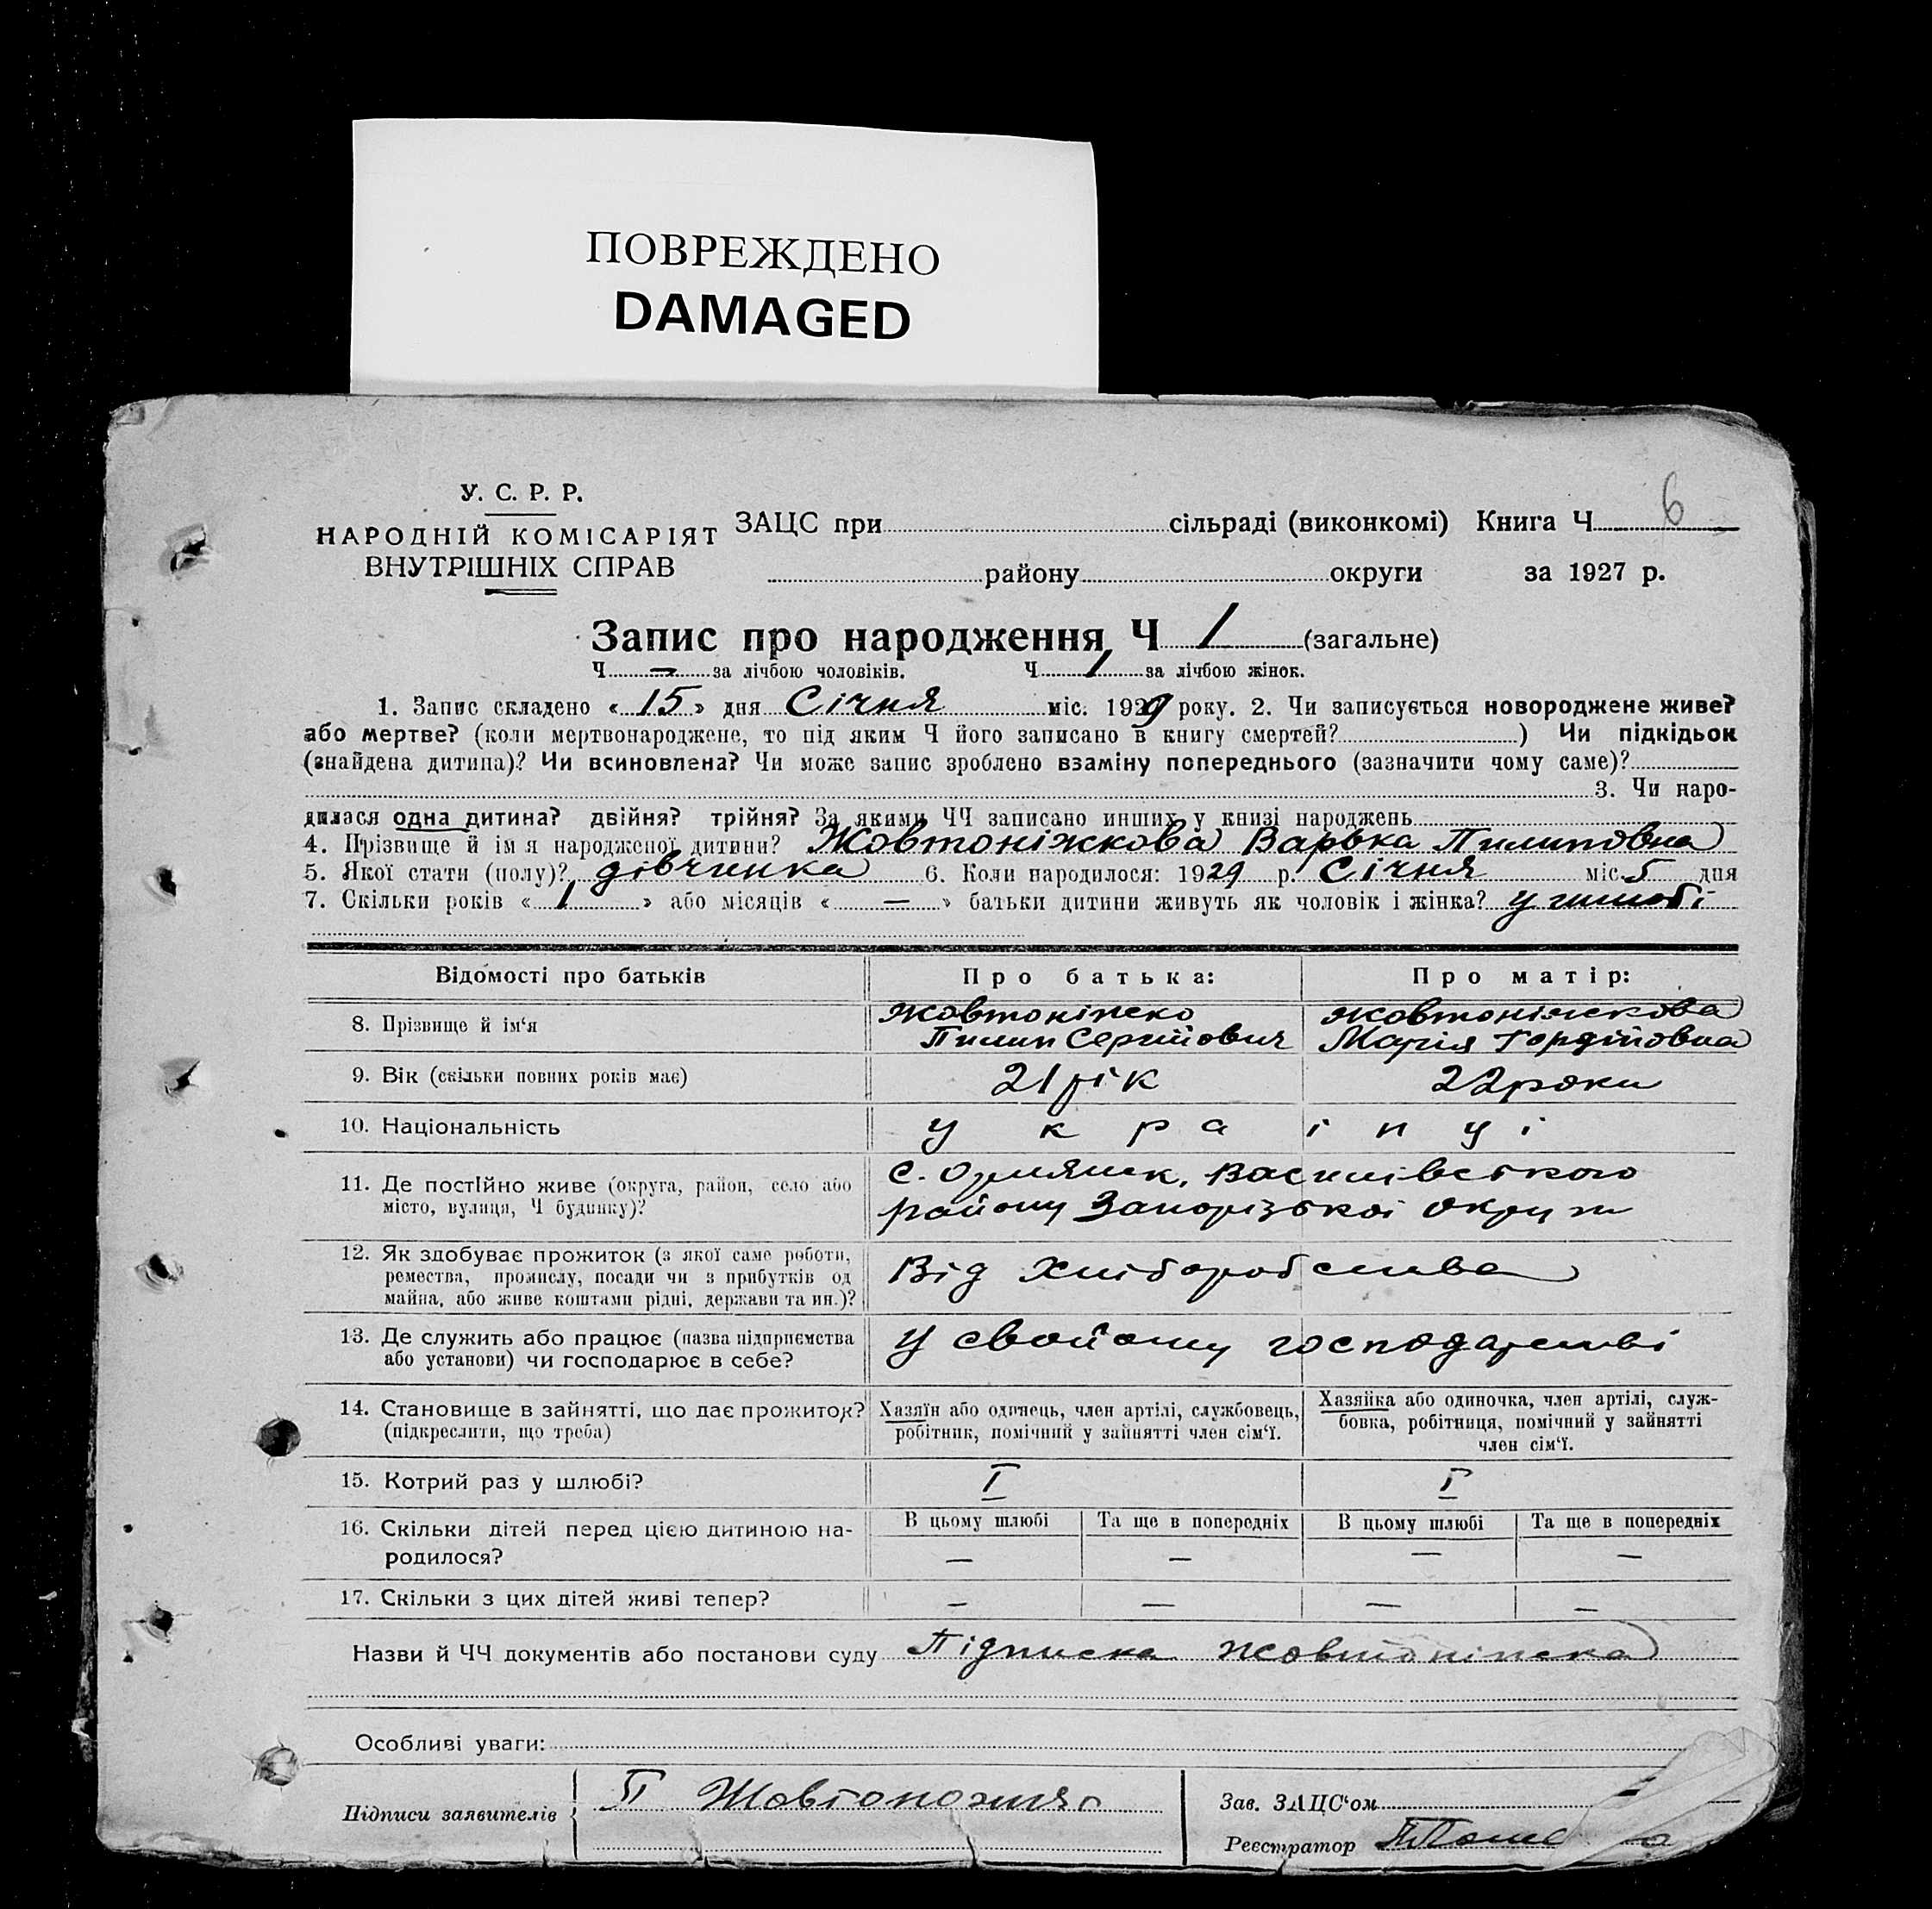 ПОВРЕЖДЕНО
DAMAGED
У. С. Р. Р.
НАРОДНІЙ КОМІСАРІЯТ
ВНУТРІШНІХ СПРАВ
ЗАЦС при сільраді (виконкомі) Книга Ч 6
району округи за 1927 р.
Запис про народження Ч 1 (загальне)
Ч — за лічбою чоловіків. Ч 1 за лічбою жінок.
1. Запис складено « 15 » дня Січня міс. 1929 року. 2. Чи записується новороджене живе?
або мертве? (коли мертвонароджене, то під яким Ч його записано в книгу смертей? ) Чи підкідьок
(знайдена дитина)? Чи всиновлена? Чи може запис зроблено взаміну попереднього (зазначити чому саме)?
3. Чи наро-
дилася одна дитина? двійня? трійня? За якими ЧЧ записано инших у книзі народжень
4. Прізвище й ім я народженої дитини? Жовтоніжкова Варька Пилиповна
5. Якої стати (полу)? дівчинка 6. Коли народилося: 1929 р. Січня міс. 5 дня
7. Скільки років « 1 » або місяців « — » батьки дитини живуть як чоловік і жінка? у шлюбі
Відомості про батьків Про батька: Про матір:
8. Прізвище й ім‘я Жовтоніжко Жовтоніжкова
Пилип Сергійович Марія Гордійовна
9. Вік (скільки повних років має) 21 рік 22 роки
10. Національність українці
11. Де постійно живе (округа, район, село або С. Орлянск, Василівського
місто, вулиця, Ч будинку)? району Запорізької округи
12. Як здобуває прожиток (з якої саме роботи,
ремества, промислу, посади чи з прибутків од Від Хліборобства
майна, або живе коштами рідні, держави та ин.)?
13. Де служить або працює (назва підприємства У свойому господарстві
або установи) чи господарює в себе?
14. Становище в зайнятті, що дає прожиток? Хазяїн або одинець, член артілі, службовець, Хазяйка або одиночка, член артілі, служ-
(підкреслити, що треба) робітник, помічний у зайнятті член сім‘ї. бовка, робітниця, помічний у зайнятті
член сім‘ї.
15. Котрий раз у шлюбі? I I
16. Скільки дітей перед цією дитиною на- В цьому шлюбі Та ще в попередніх В цьому шлюбі Та ще в попередніх
родилося? — — — —
17. Скільки з цих дітей живі тепер? — — — —
Назви й ЧЧ документів або постанови суду Підписка Жовтоніжка
Особливі уваги:
Підписи заявителів П Зав. ЗАЦС‘ом
Реєстратор